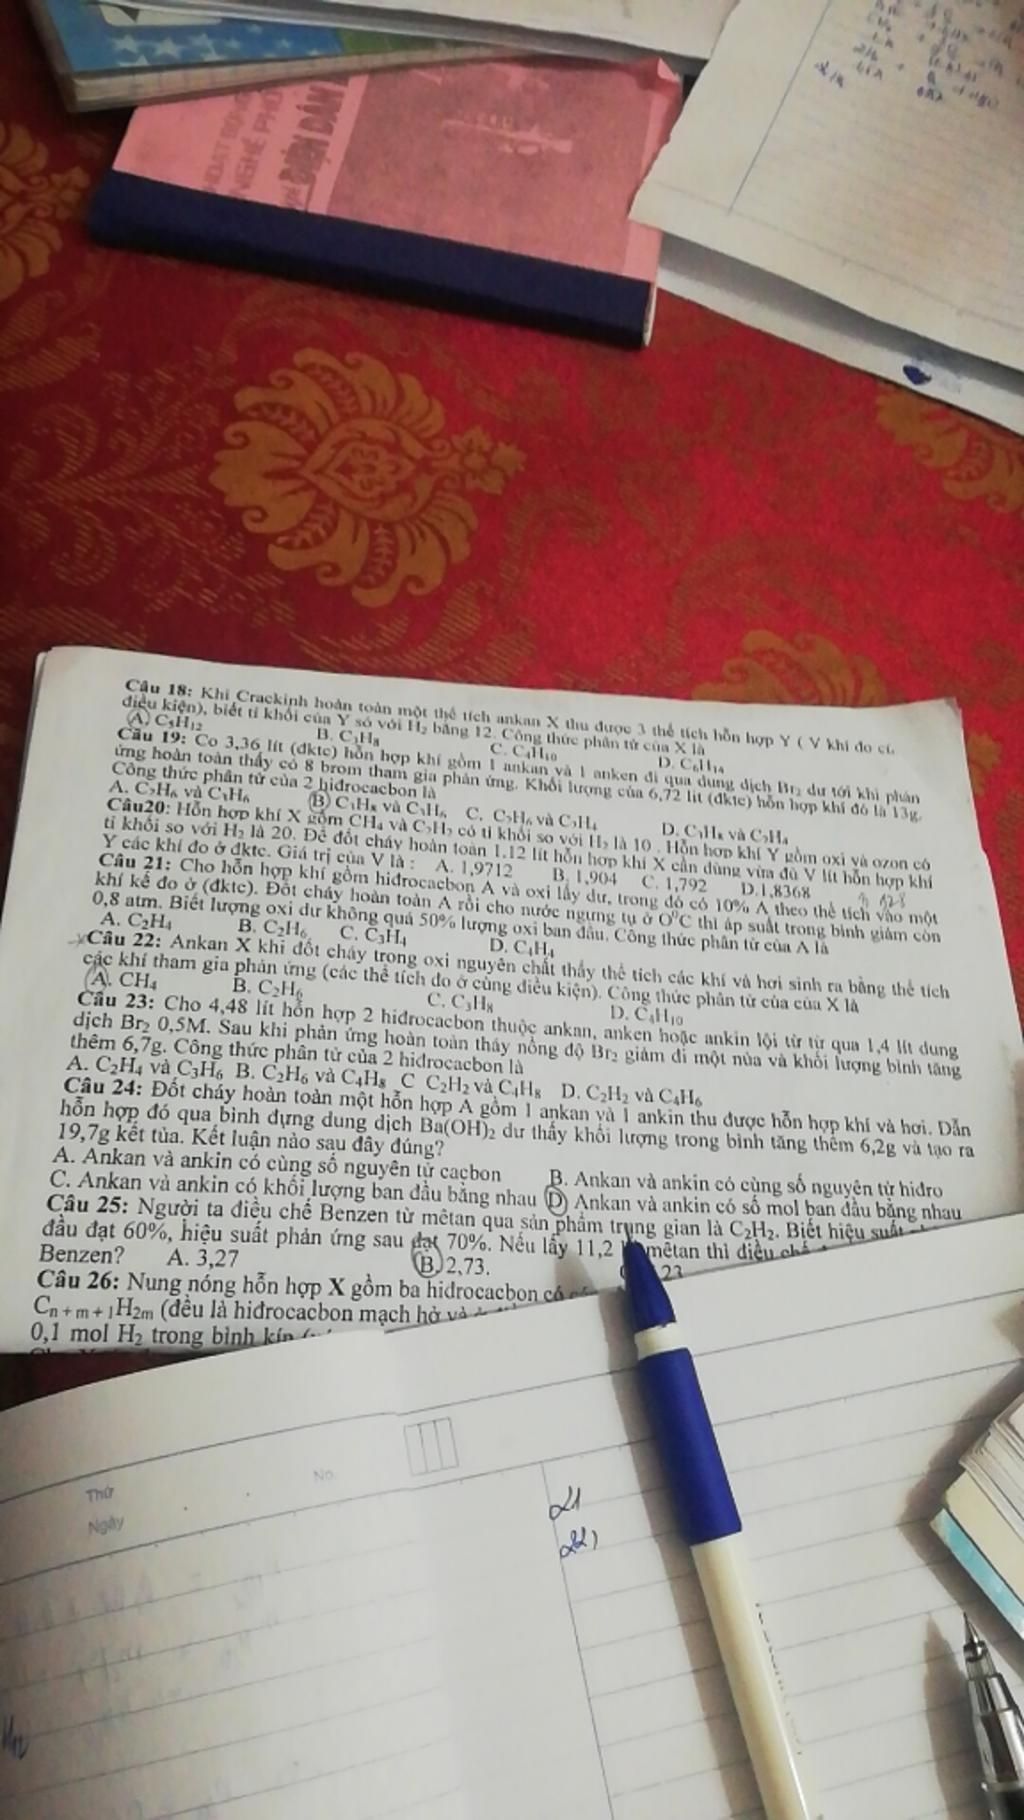 HOẠT ĐỘNG
NGHỀ PHỔ
Câu 18: Khi Crackinh hoàn toàn một thể tích ankan X thu được 3 thể tích hỗn hợp Y ( V khí đo cù.
điều kiện), biết tỉ khối của Y só với H₂ bằng 12. Công thức phân tử của X là
A. C₅H₁₂ B. C₃H₈ C. C₄H₁₀ D. C₆H₁₄
Câu 19: Có 3,36 lít (đktc) hỗn hợp khí gồm 1 ankan và 1 anken đi qua dung dịch Br₂ dư tới khi phản
ứng hoàn toàn thấy có 8 brom tham gia phản ứng. Khối lượng của 6,72 lít (đktc) hỗn hợp khí đó là 13g.
Công thức phân tử của 2 hiđrocacbon là
A. C₂H₆ và C₃H₆ B. C₃H₈ và C₃H₆ C. C₂H₆ và C₂H₄ D. C₃H₈ và C₂H₄
Câu20: Hỗn hợp khí X gồm CH₄ và C₂H₂ có tỉ khối so với H₂ là 10 . Hỗn hợp khí Y gồm oxi và ozon có
tỉ khối so với H₂ là 20. Để đốt cháy hoàn toàn 1,12 lít hỗn hợp khí X cần dùng vừa đủ V lít hỗn hợp khí
Y các khí đo ở đktc. Giá trị của V là : A. 1,9712 B. 1,904 C. 1,792 D.1,8368
Câu 21: Cho hỗn hợp khí gồm hiđrocacbon A và oxi lấy dư, trong đó có 10% A theo thể tích vào một
khí kế đo ở (đktc). Đốt cháy hoàn toàn A rồi cho nước ngưng tụ ở O⁰C thì áp suất trong bình giảm còn
0,8 atm. Biết lượng oxi dư không quá 50% lượng oxi ban đầu. Công thức phân tử của A là
A. C₂H₄ B. C₂H₆ C. C₃H₄ D. C₄H₄
Câu 22: Ankan X khi đốt cháy trong oxi nguyên chất thấy thể tích các khí và hơi sinh ra bằng thể tích
các khí tham gia phản ứng (các thể tích đo ở cùng điều kiện). Công thức phân tử của của X là
A. CH₄ B. C₂H₆ C. C₃H₈ D. C₄H₁₀
Câu 23: Cho 4,48 lít hỗn hợp 2 hiđrocacbon thuộc ankan, anken hoặc ankin lội từ từ qua 1,4 lít dung
dịch Br₂ 0,5M. Sau khi phản ứng hoàn toàn thấy nồng độ Br₂ giảm đi một nửa và khối lượng bình tăng
thêm 6,7g. Công thức phân tử của 2 hiđrocacbon là
A. C₂H₄ và C₃H₆ B. C₂H₆ và C₄H₈ C C₂H₂ và C₄H₈ D. C₂H₂ và C₄H₆
Câu 24: Đốt cháy hoàn toàn một hỗn hợp A gồm 1 ankan và 1 ankin thu được hỗn hợp khí và hơi. Dẫn
hỗn hợp đó qua bình đựng dung dịch Ba(OH)₂ dư thấy khối lượng trong bình tăng thêm 6,2g và tạo ra
19,7g kết tủa. Kết luận nào sau đây đúng?
A. Ankan và ankin có cùng số nguyên tử cacbon B. Ankan và ankin có cùng số nguyên tử hiđro
C. Ankan và ankin có khối lượng ban đầu bằng nhau D Ankan và ankin có số mol ban đầu bằng nhau
Câu 25: Người ta điều chế Benzen từ mêtan qua sản phẩm trung gian là C₂H₂. Biết hiệu suất
đầu đạt 60%, hiệu suất phản ứng sau đạt 70%. Nếu lấy 11,2 mêtan thì điều chế
Benzen? A. 3,27 B. 2,73. 23
Câu 26: Nung nóng hỗn hợp X gồm ba hiđrocacbon có
Cₙ₊ₘ₊₁H₂ₘ (đều là hiđrocacbon mạch hở và
0,1 mol H₂ trong bình kín
Thứ
Ngày
No.
21
22)